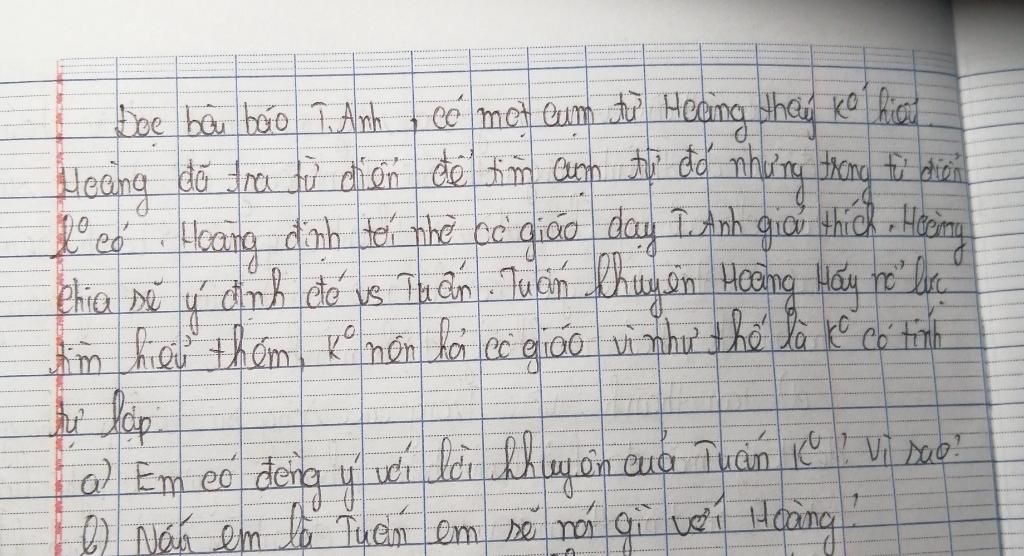 Đọc bài báo T.Anh, có một cụm từ Hoàng thấy k° hiểu.
Hoàng đã tra từ điển để tìm cụm từ đó nhưng trong từ điển
k° có. Hoàng định tới nhờ cô giáo dạy T.Anh giải thích. Hoàng
chia sẽ ý định đó vs Tuấn. Tuấn khuyên Hoàng Hãy nổ lực
tìm hiểu thêm, k° nên hỏi cô giáo vì như thế là k° có tính
tự lập.
a) Em có đồng ý với lời khuyên của Tuấn k°? Vì sao?
b) Nếu em là Tuấn em sẽ nói gì với Hoàng?